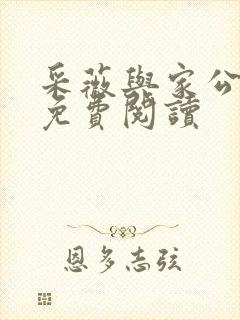 采薇與家公
免費閱讀
恩多志弦